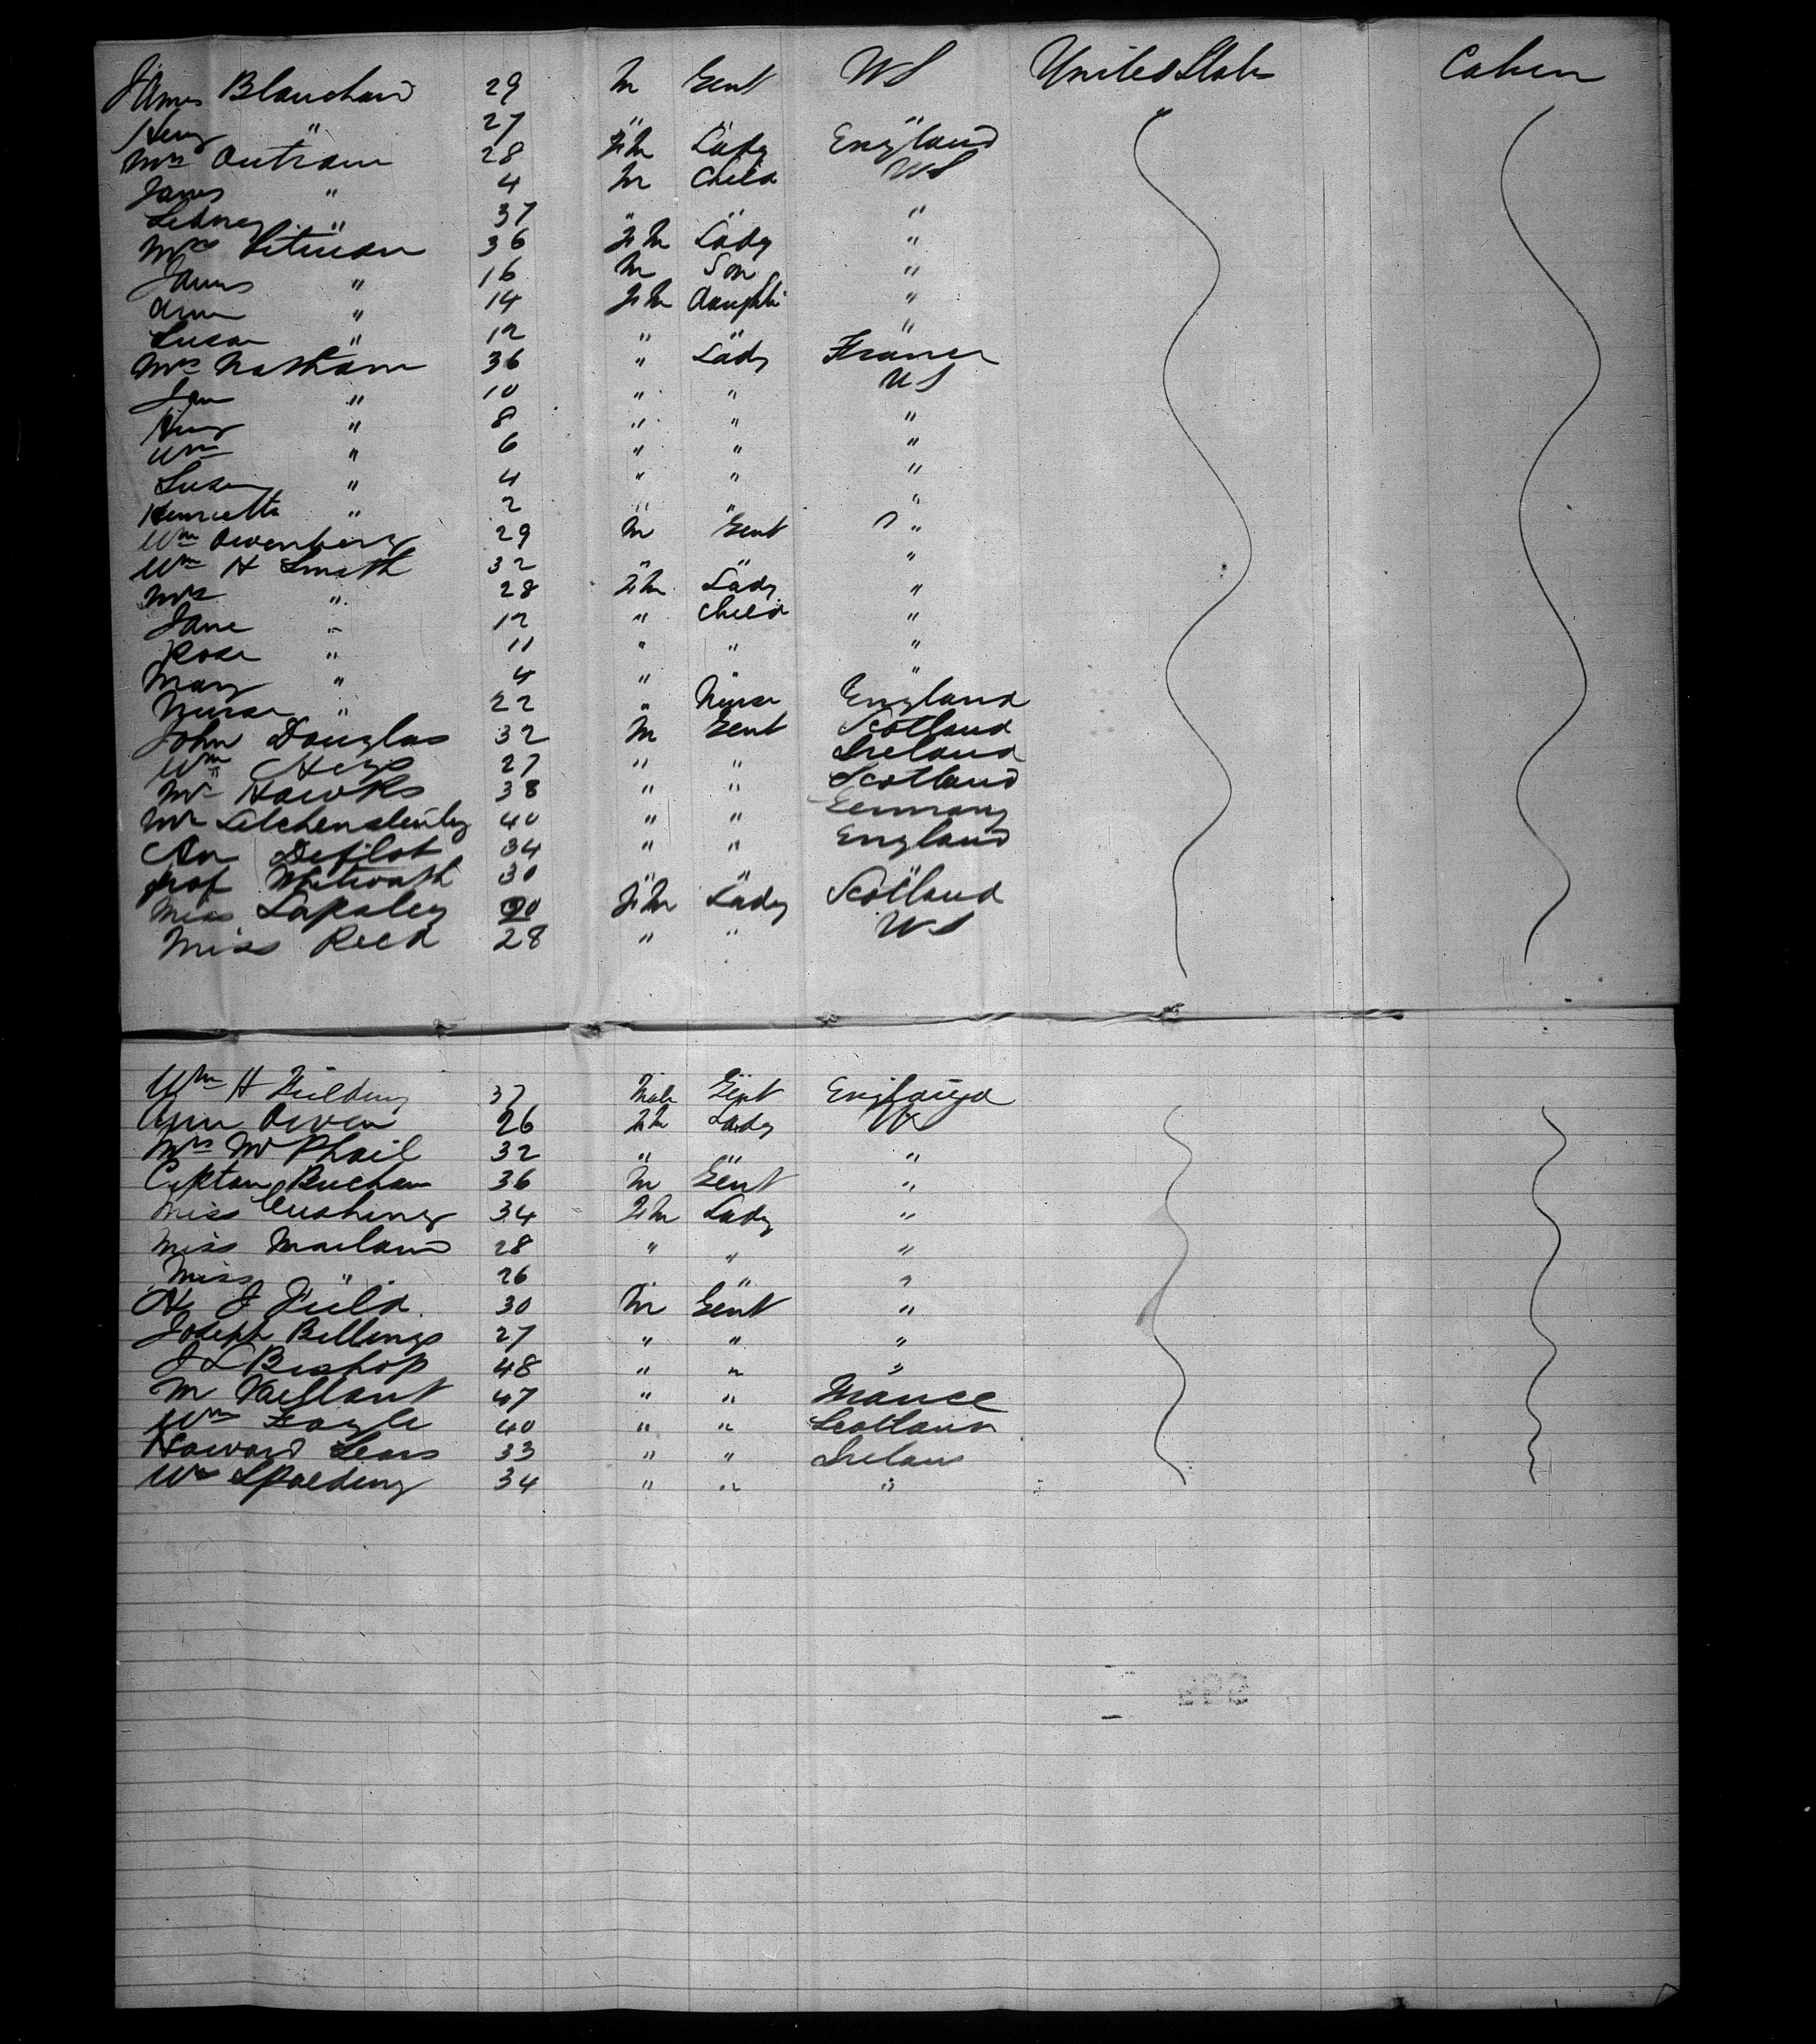 James Blanchard 29 M Gent US United States Cabin
Henry " 27 " " "
Mrs Outram 28 Fm Lady England
James " 4 M Child US
Sidney " 37 " " "
Mrs Pitman 36 Fm Lady "
James " 16 M Son "
Ann " 14 Fm Daughter "
Susan " 12 " " "
Mrs Nathan 36 " Lady France
Jan " 10 " " US
Henry " 8 " " "
Wm " 6 " " "
Susan " 4 " " "
Henrietta " 2 " " "
Wm 29 M Gent "
Wm H Smith 32 " " "
Mrs " 28 Fm Lady "
Jane " 12 " Child "
Rose " 11 " " "
Mary " 4 " " "
Nurse " 22 " Nurse England
John Douglas 32 M Gent Scotland
Wm Hays 27 " " Ireland
Mr Hawks 38 " " Scotland
Mr 40 " " Germany
34 " " England
Prof Whitworth 30 " " "
Miss Lapsley 20 Fm Lady Scotland
Miss Reed 28 " " US
Wm H Fielding 37 Male Gent England
Ann Owen 26 Fm Lady US
Mrs McPhail 32 " " "
Captan Bucham 36 M Gent "
Miss Cushing 34 Fm Lady "
Miss Marland 28 " " "
Miss " 26 " "
H J Field 30 M Gent "
Joseph Billings 27 " " "
J L Bishop 48 " " "
M Vaillant 47 " " France
Wm 40 " " Scotland
Howard Sears 33 " " Ireland
Wm Spalding 34 " " "